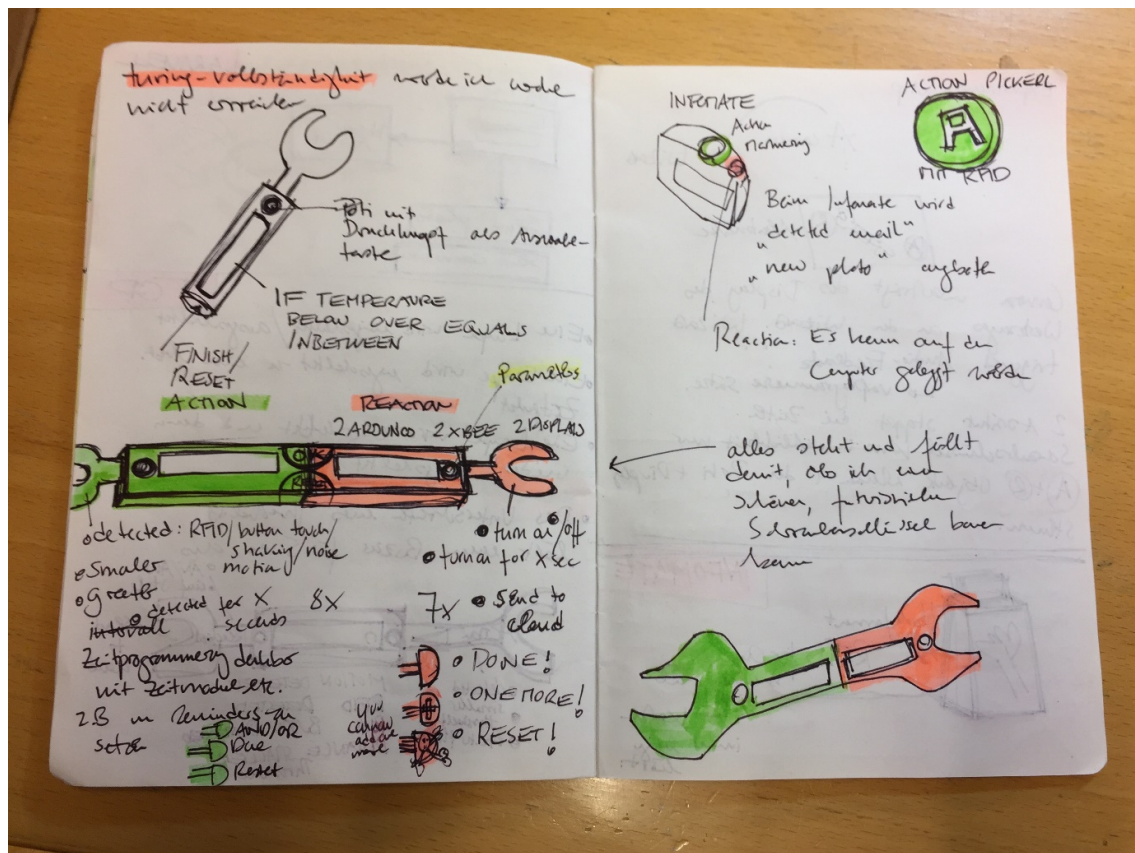 turing-vollständigkeit werde ich
nicht erreichen
Poti mit
Druckknopf als Auswahl-
taste
IF TEMPERATURE
BELOW OVER EQUALS
INBETWEEN
FINISH/
RESET
ACTION
REACTION
Parameters
2 ARDUNOO 2 XBEE 2 DISPLAY
detected: RFID/button touch/
shaking/noise
motion/
smaller
greater
detected for X
seconds
intervall
8x
Zeitprogrammierung denkbar
mit Zeitmodul etc.
z.B um Reminders zu
setzen
AND/OR
Done
Reset
turn on/off
turn on for x sec
7x
send to
cloud
DONE!
ONE MORE!
RESET!
you
can now
add one
more
INFOMATE
Action
ACTION PICKERL
A
MIT RFID
Beim Infomate wird
"deteted mail"
"new photo" angeboten
Reaction: Es kann auf den
Computer geloggt werden
alles steht und fällt
damit, ob ich einen
schönen, futuristischen
Schraubenschlüssel bauen
kann